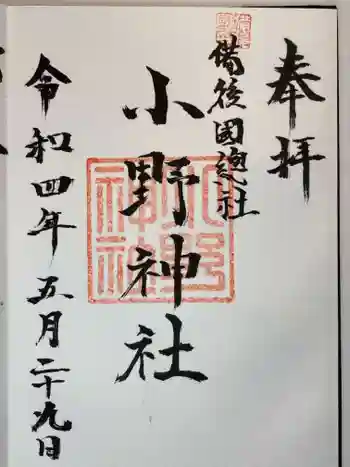 奉拝
備後國総社
小野神社
小野神社
令和四年五月二十九日